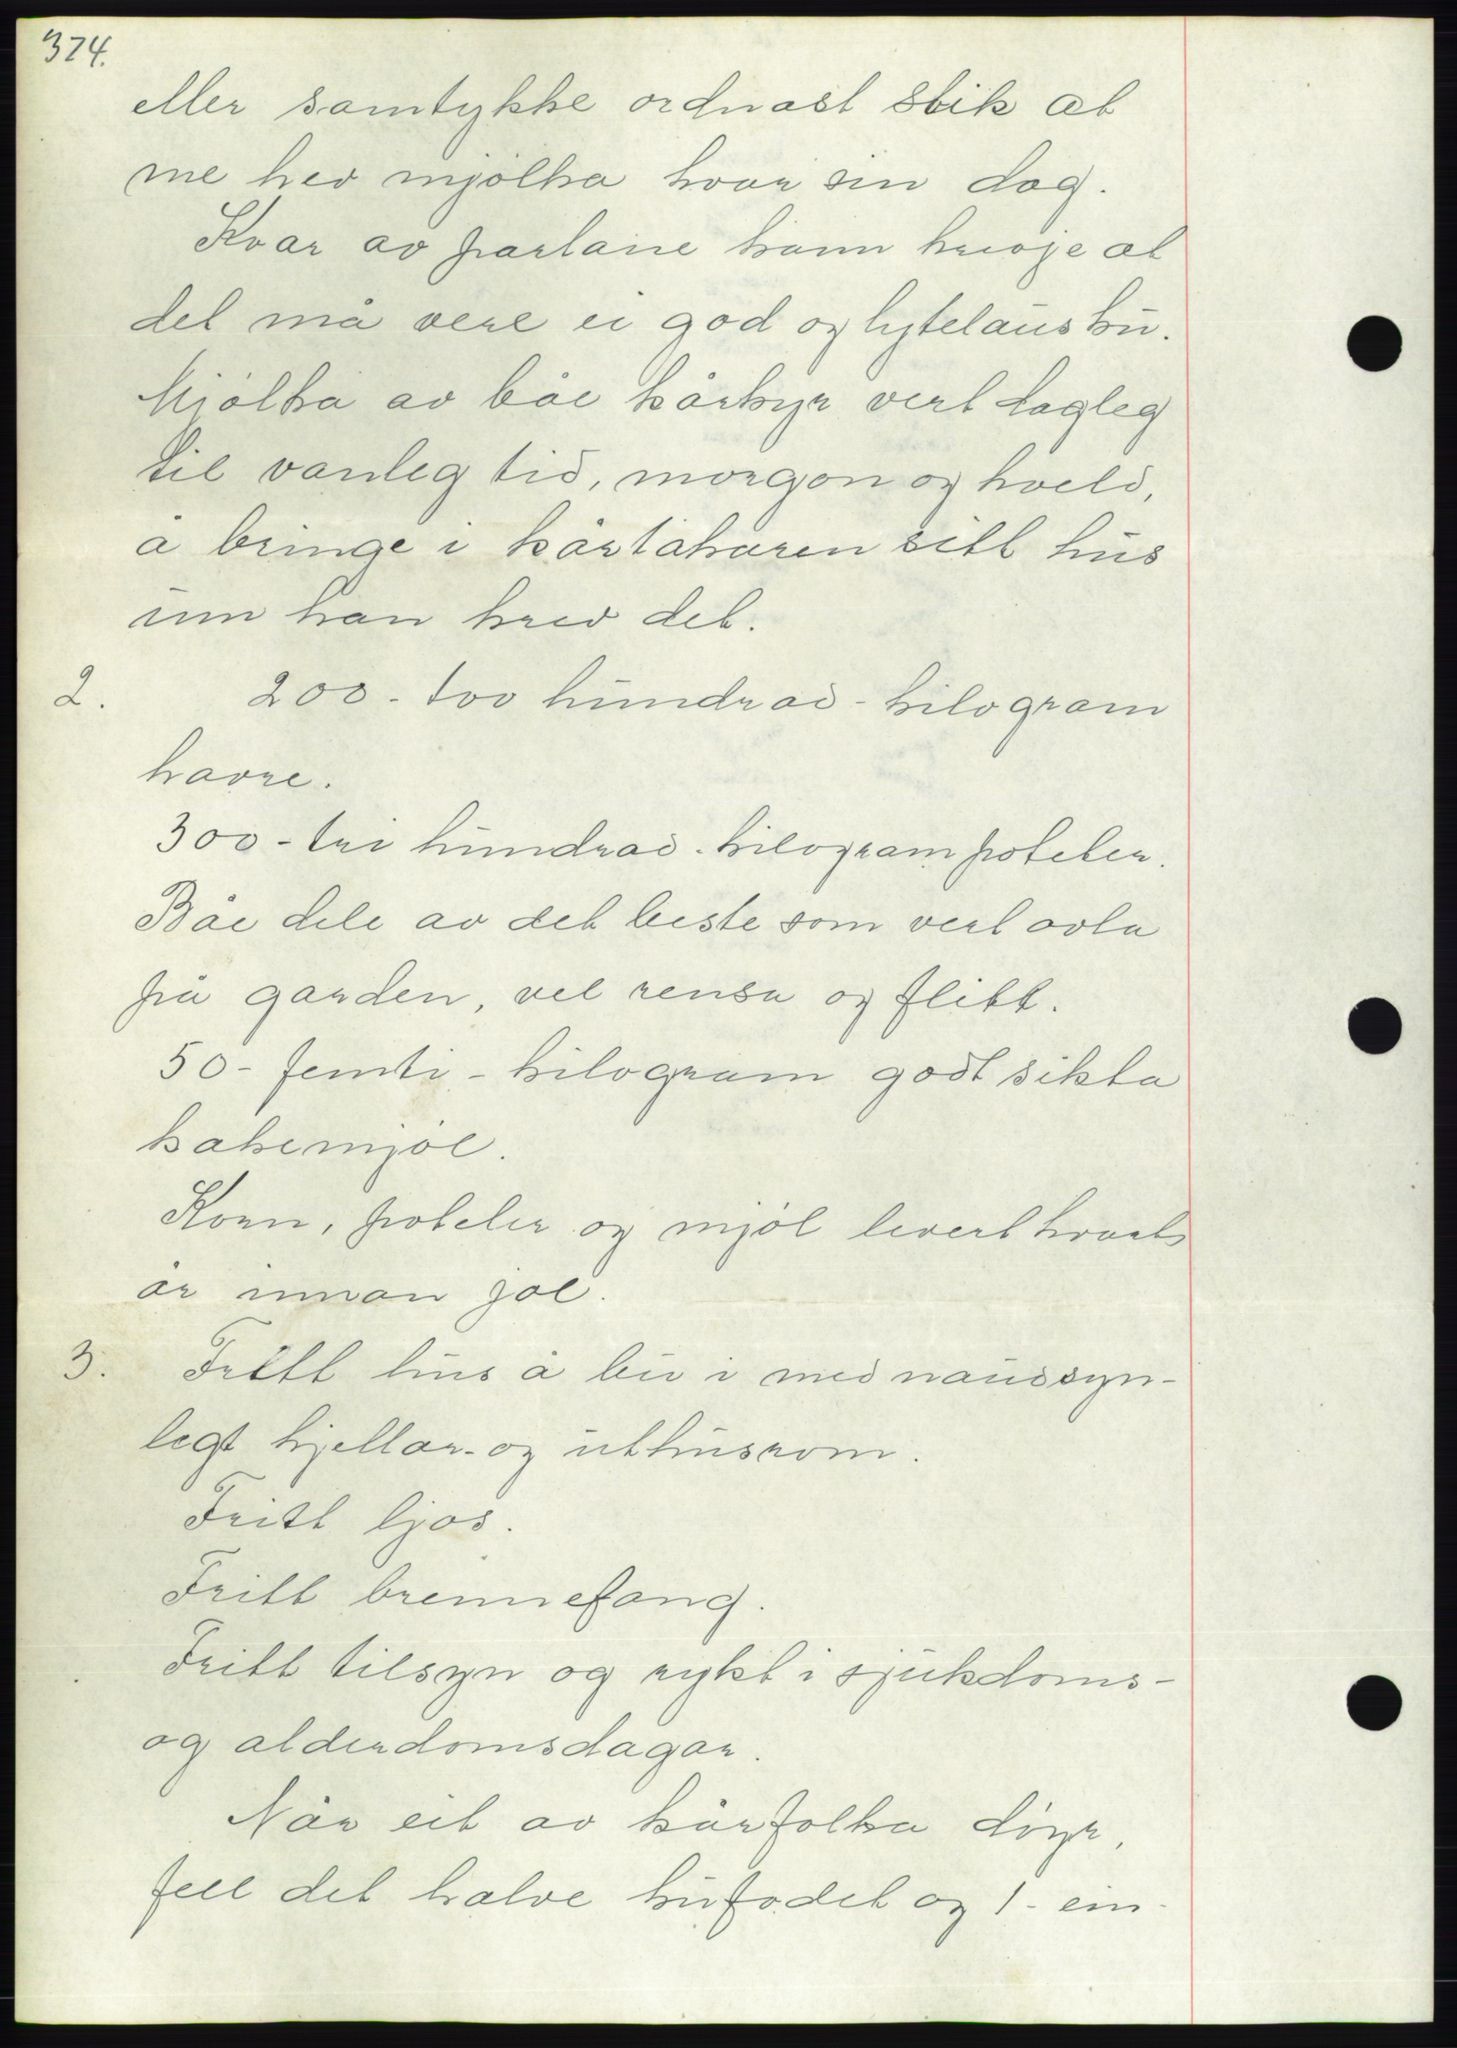 374.
eller samtykke ordnast slik at
me hev mjølka kvar sin dag.
Kvar av partane kann krevje at
det må vere ei god og lytelaus ku.
Mjølka av båe kårkyr vert dagleg
til vanleg tid, morgon og kveld,
å bringe i kårtakaren sitt hus
um han krev det.
2. 200 - tvo hundrad - kilogram
havre.
300 - tri hundrad - kilogram poteter.
Båe dele av det beste som vert avla
på garden, vel rensa og flitt.
50 - femti - kilogram godt sikta
kakemjøl.
Korn, poteter og mjøl levert kvart
år innan jol.
3. Fritt hus å bu i med naudsyn-
legt kjellar- og uthusrom.
Fritt ljos.
Fritt brennefang.
Fritt tilsyn og rykt i sjukdoms-
og alderdomsdagar.
Når eit av kårfolka døyr,
fell det halve kufodet og 1 - ein -